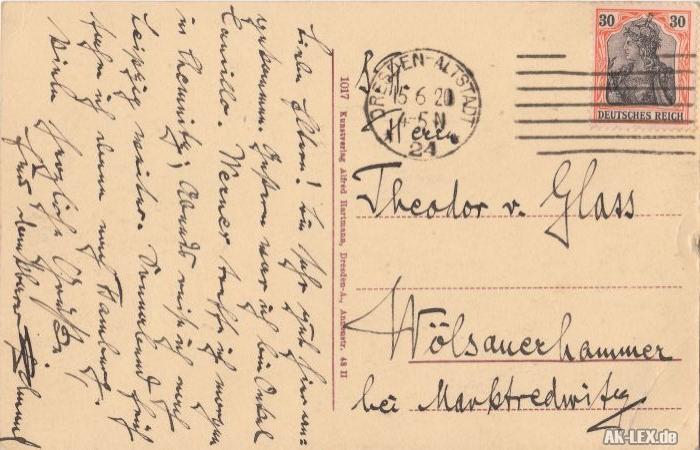 Liebe Eltern! Bin sehr gut hier an-
gekommen. Gestern war ich bei Onkel
Camillo. Werner treffe ich morgen
in Chemnitz; Abends muß ich nach
Leipzig weiter. Sonnabend früh
fahre ich dann nach Hamburg.
Viele herzliche Grüße
1017 Kunstverlag Alfred Hartmann, Dresden-A., Annenstr. 48 II
DRESDEN-ALTSTADT
15 6 20
4-5 N
24
30 30
DEUTSCHES REICH
Herrn
Theodor v. Glass
Wölsauerhammer
bei Marktredwitz
AK-LEX.de